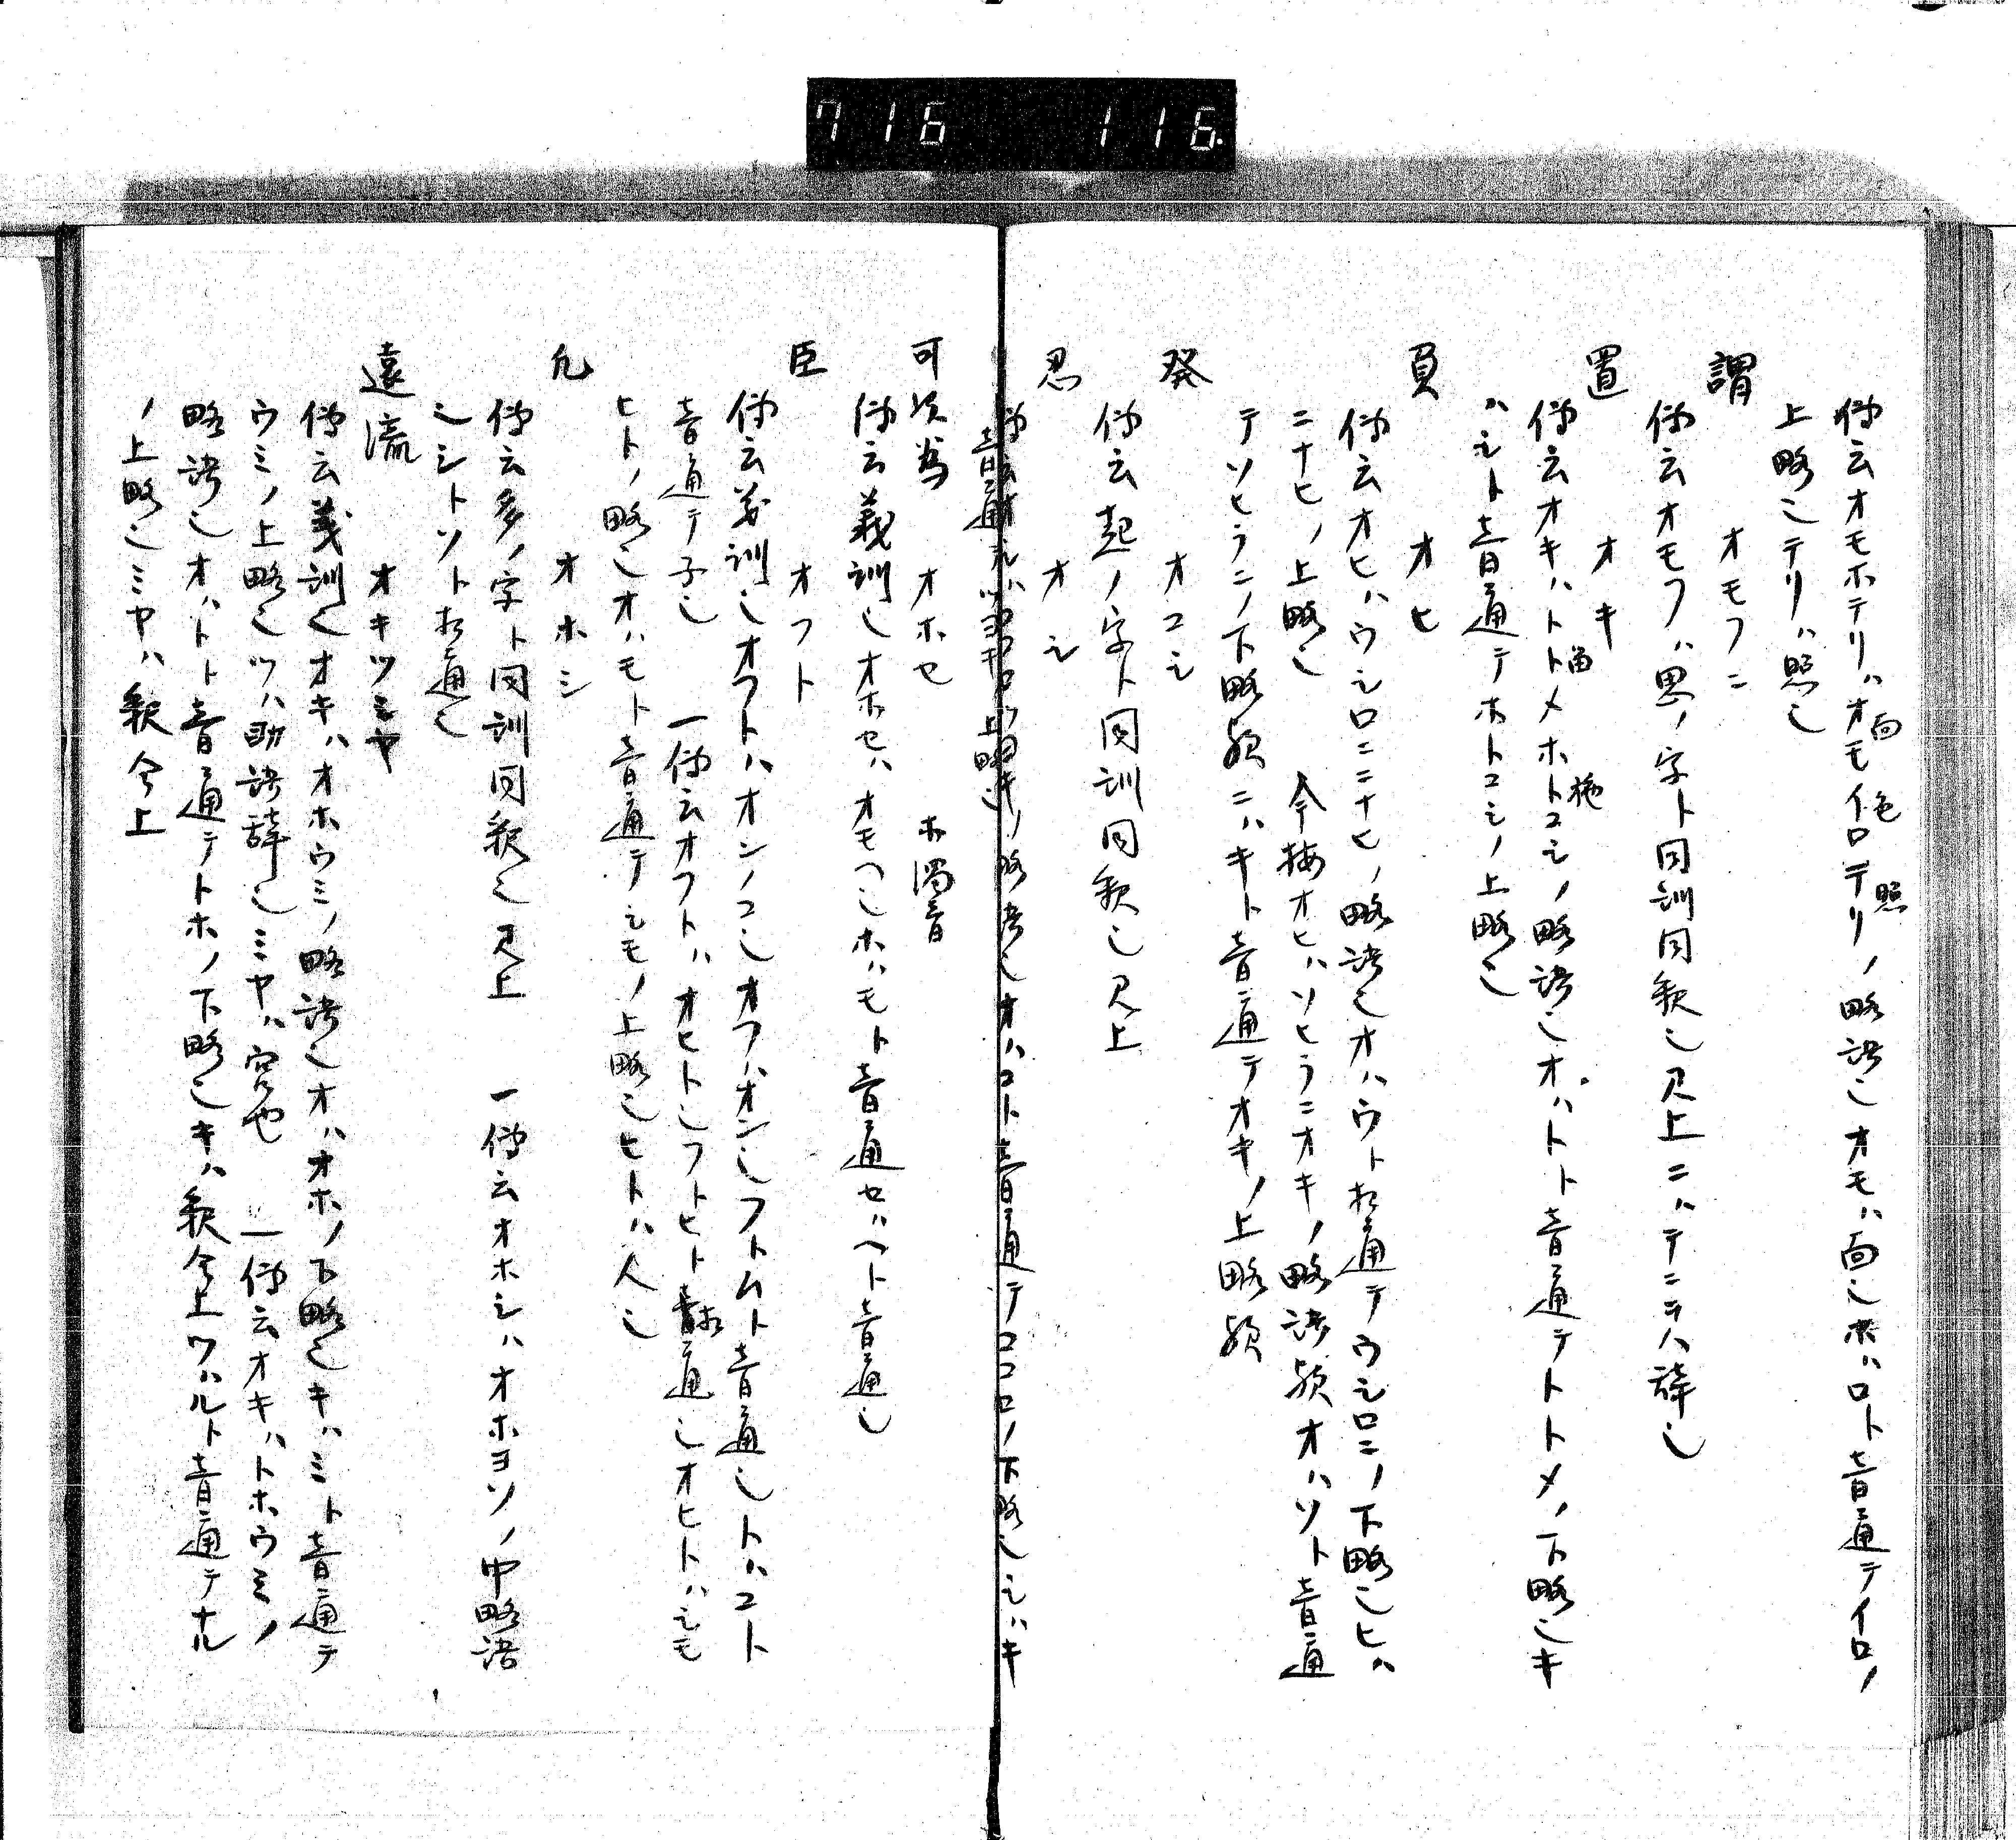 716 116.
傳云オモホテリハオモイロテリノ略語也オモハ面也ホハロト音通テイロノ
面 色 照
上略也テリハ照也
謂 オモフニ
傳云オモフハ思ノ字ト同訓同釈也見上ニハテニヲハ辞也
置 オキ
傳云オキハトトメホトコシノ略語也オハトト音通テトトメノ下略也キ
留 施
ハシト音通テホトコシノ上略也
負 オヒ
傳云オヒハウシロニニナヒノ略語也オハウト相通テウシロニノ下略也ヒハ
ニナヒノ上略也 今按オヒハソヒラニオキノ略語歟オハソト音通
テソヒラニノ下略歟ニハキト音通テオキノ上略歟
発 オコシ
傳云起ノ字ト同訓同釈也見上
忍 オシ
略語也オハコト音通テココロノ下略也シハキ
音通 上略也
可須為 オホセ ホ濁音
傳云義訓也オホセハオモヘ也ホハモト音通セハヘト音通也
臣 オフト
傳云義訓也オフトハオンノコ也オフハオン也フトムト音通也トハコト
音通テ子也 一傳云オフトハオヒト也フトヒト相通也オヒトハシモ
ヒトノ略也オハモト音通テシモノ上略也ヒトハ人也
凡 オホシ
傳云多ノ字ト同訓同釈也見上 一傳云オホシハオホヨソノ中略語
也シトソト相通也
遠流 オキツミヤ
傳云義訓也オキハオホウミノ略語也オハオホノ下略也キハミト音通テ
ウミノ上略也ツハ助語辞也ミヤハ宮也 一傳云オキハトホウミノ
略語也オハトト音通テトホノ下略也キハ釈今上ツハルト音通テナル
ノ上略也ミヤハ釈今上